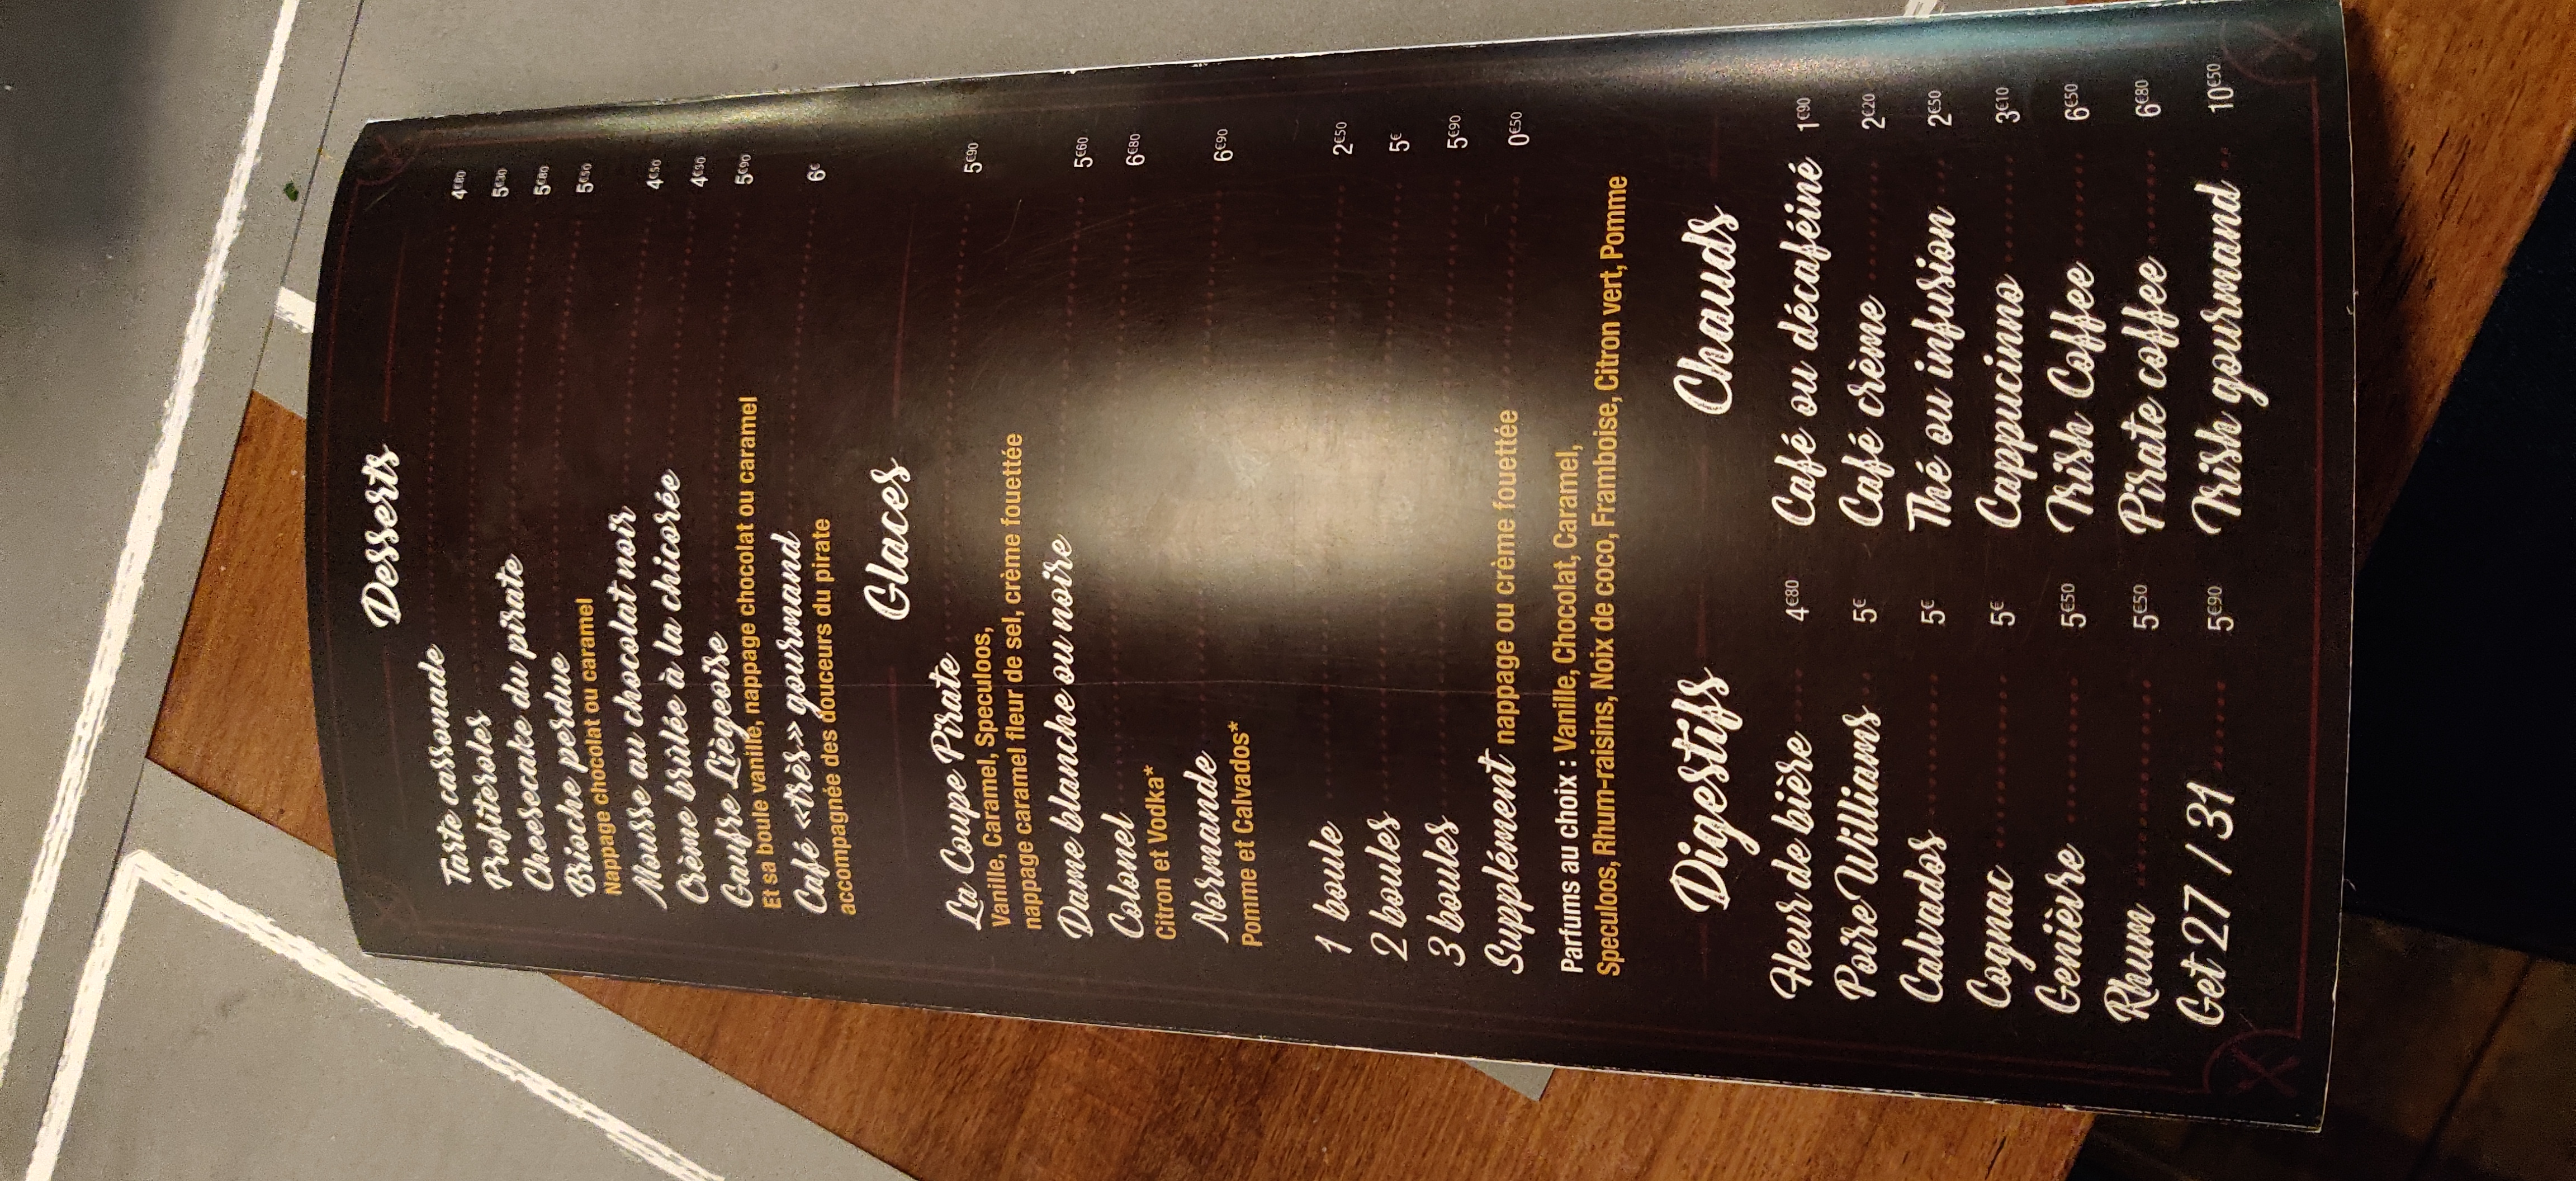 Desserts
Tarte cassonade 4€80
Profiteroles 5€30
Cheesecake du pirate 5€80
Brioche perdue 5€50
Nappage chocolat ou caramel
Mousse au chocolat noir 4€50
Crème brûlée à la chicorée 4€50
Gaufre Liègeoise 5€90
Et sa boule vanille, nappage chocolat ou caramel
Café «très» gourmand 6€
accompagnée des douceurs du pirate
Glaces
La Coupe Pirate 5€90
Vanille, Caramel, Speculoos,
nappage caramel fleur de sel, crème fouettée
Dame blanche ou noire 5€60
Colonel 6€80
Citron et Vodka*
Normande 6€90
Pomme et Calvados*
1 boule 2€50
2 boules 5€
3 boules 5€90
Supplément nappage ou crème fouettée 0€50
Parfums au choix : Vanille, Chocolat, Caramel,
Speculoos, Rhum-raisins, Noix de coco, Framboise, Citron vert, Pomme
Digestifs
Fleur de bière 4€80
Poire Williams 5€
Calvados 5€
Cognac 5€
Genièvre 5€50
Rhum 5€50
Get 27 / 31 5€90
Chauds
Café ou décaféiné 1€90
Café crème 2€20
Thé ou infusion 2€50
Cappucinno 3€10
Irish Coffee 6€50
Pirate coffee 6€80
Irish gourmand 10€50